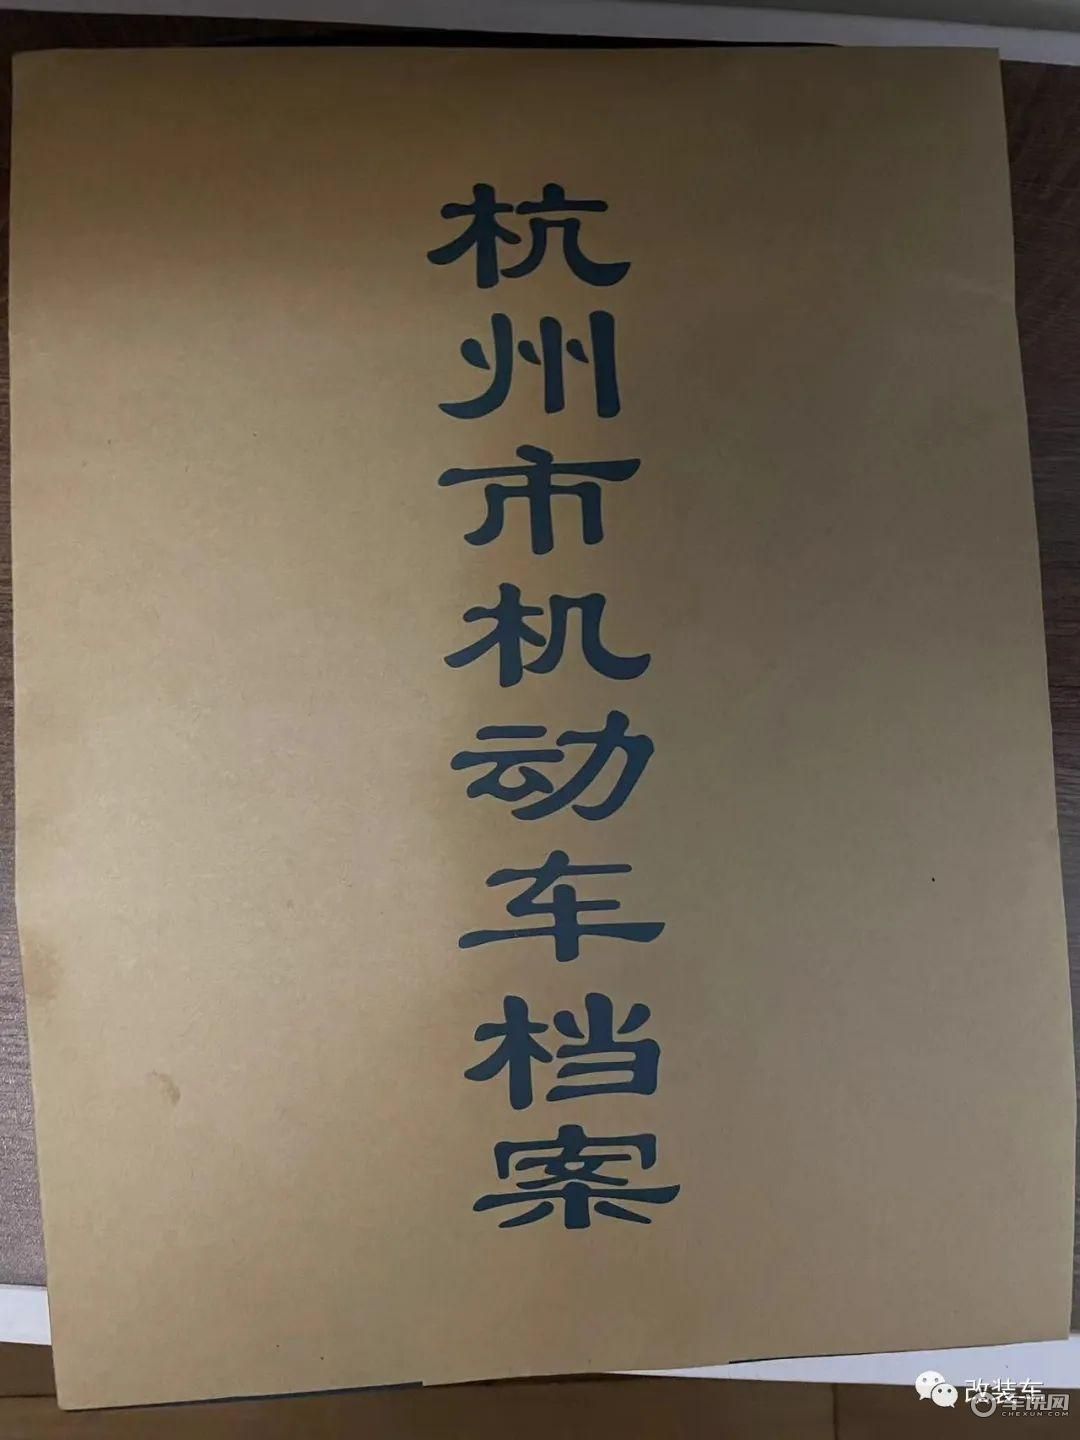 杭州市机动车档案
改装车
车讯网
CHEXUN.COM